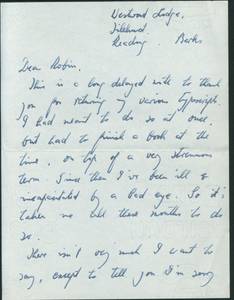 Westwood Lodge,
Tilehurst,
Reading. Berks
Dear Robin,
This is a long delayed note to thank
you for returning my various typescripts.
I had meant to do so at once,
but had to finish a book at the
time, on top of a very strenuous
term. Since then I've been ill &
incapacitated by a bad eye. So it's
taken me all these months to do
so.
There isn't very much I want to
say, except to tell you I'm sorry